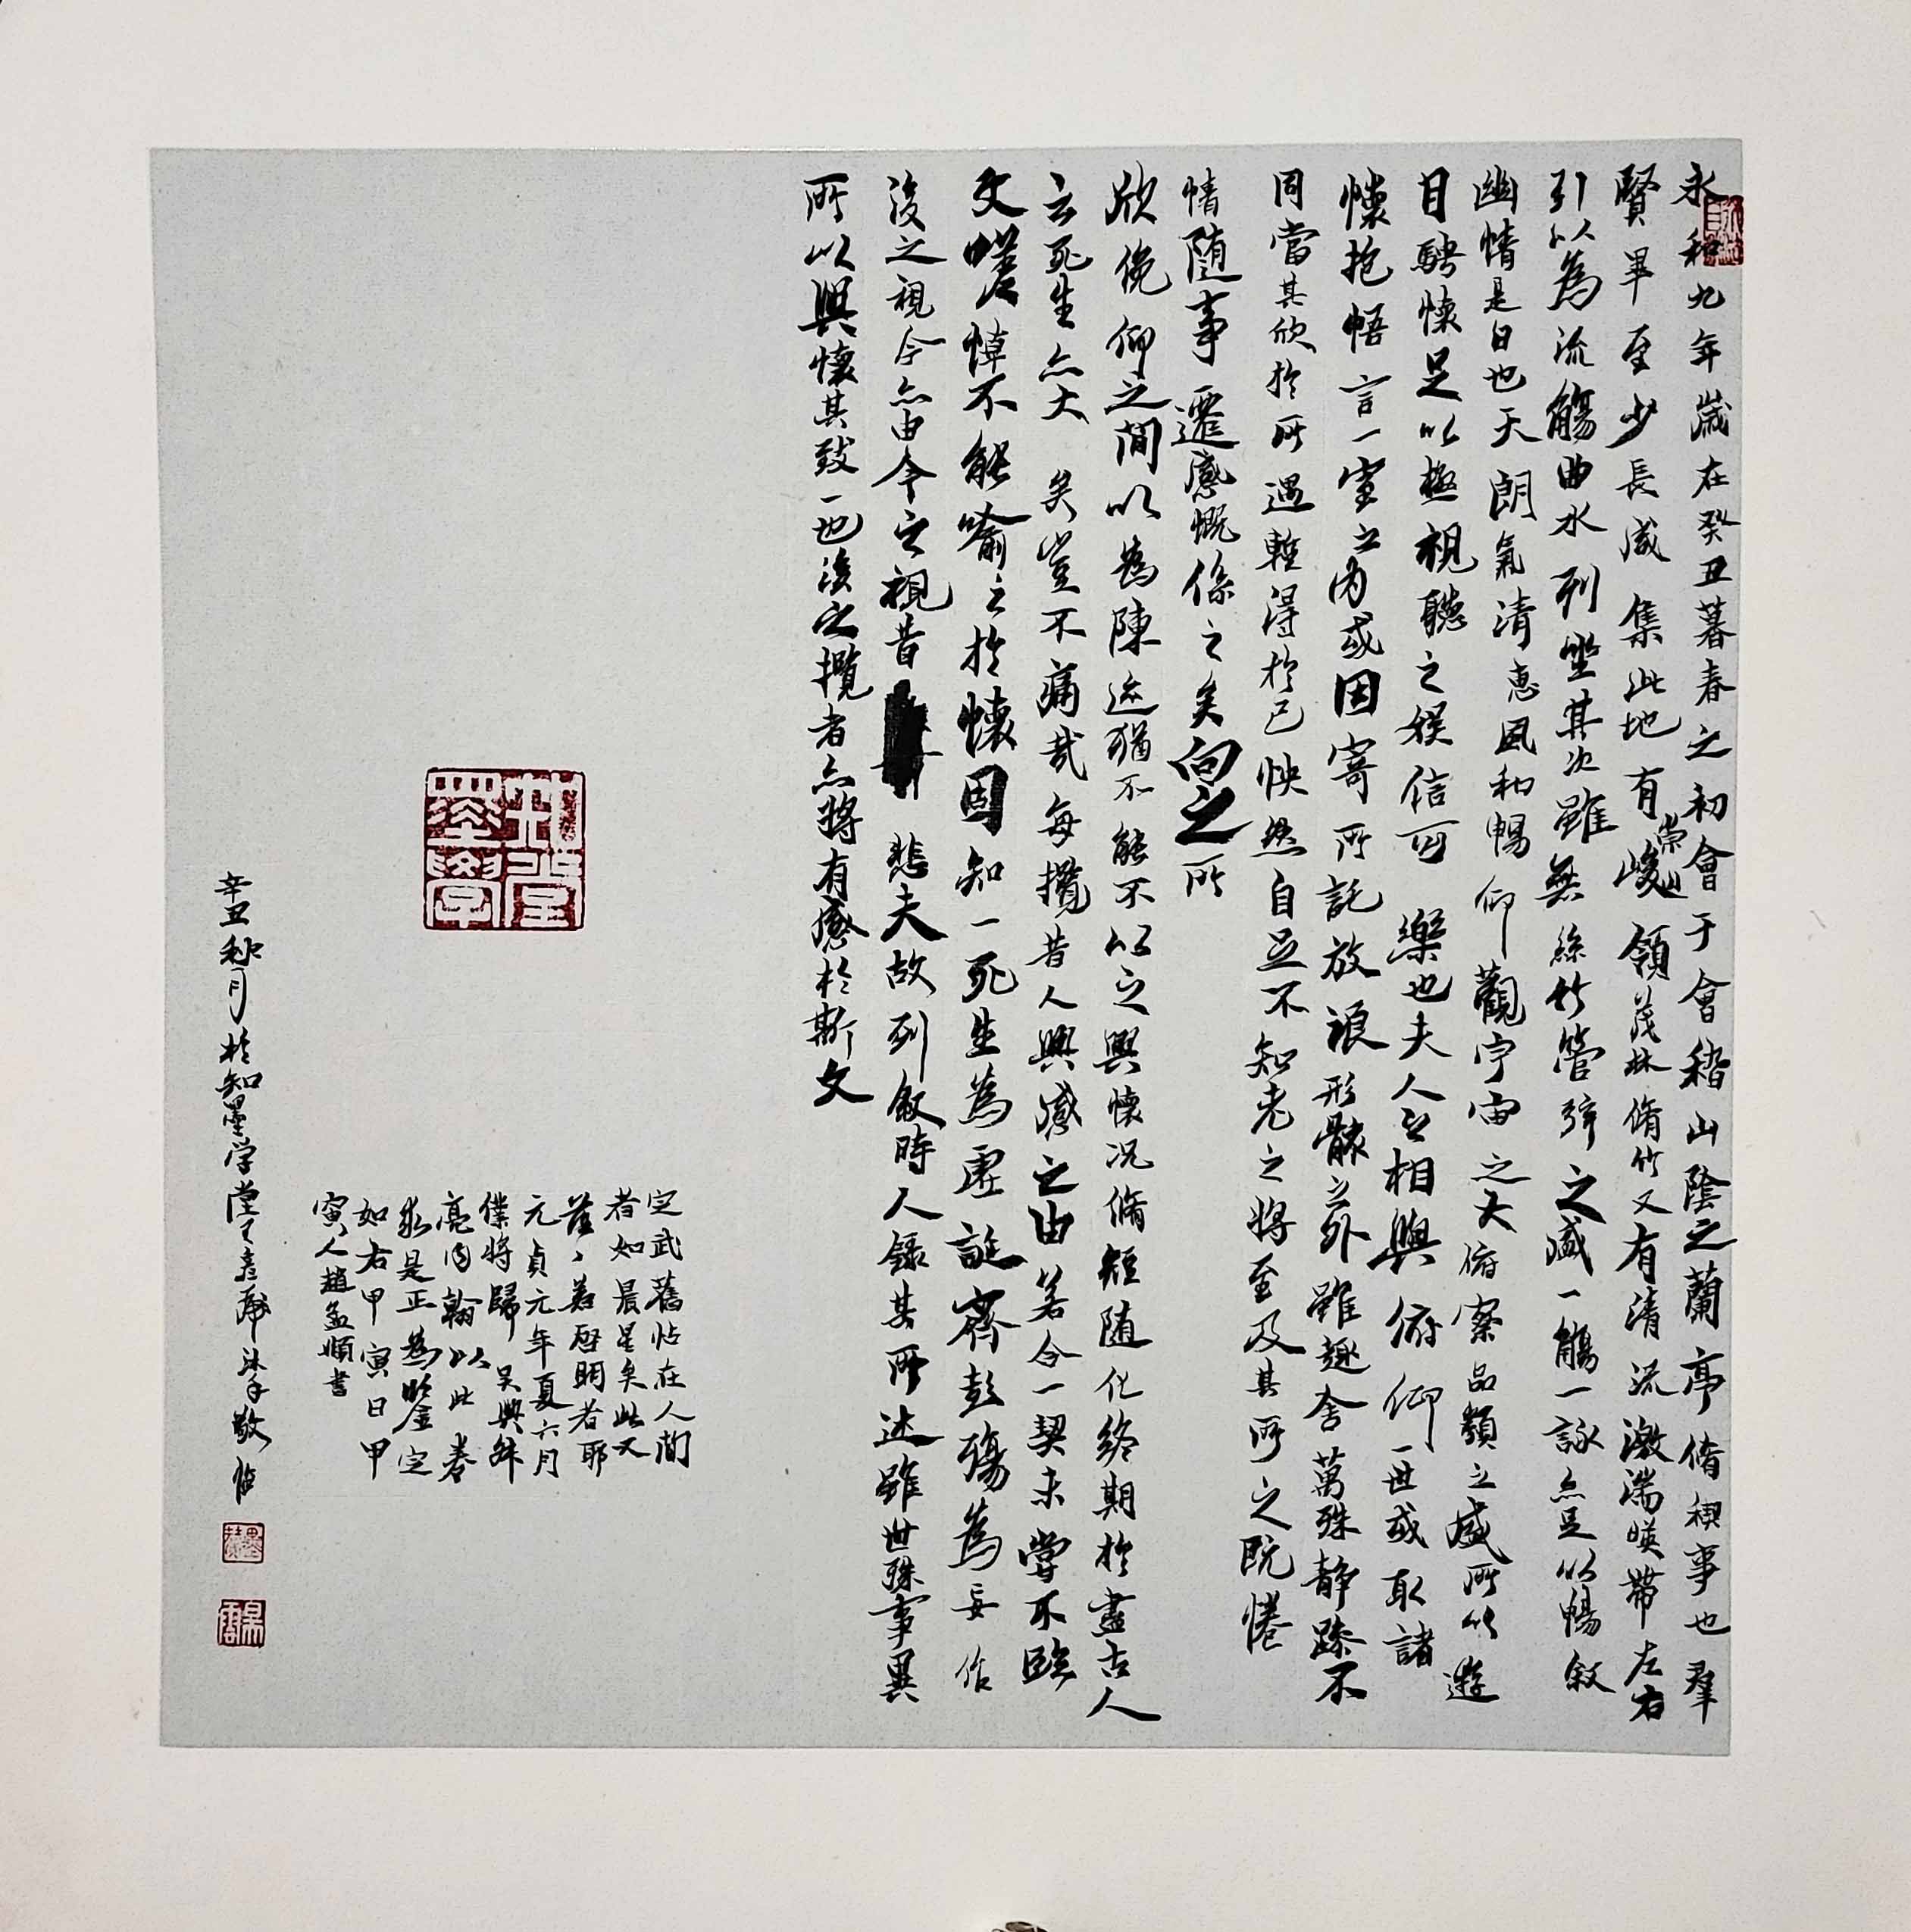 永和九年歲在癸丑暮春之初會于會稽山陰之蘭亭脩稧事也羣
賢畢至少長咸集此地有崇山峻領茂林脩竹又有清流激湍暎帶左右
引以為流觴曲水列坐其次雖無絲竹管弦之盛一觴一詠亦足以暢敘
幽情是日也天朗氣清惠風和暢仰觀宇宙之大俯察品類之盛所以遊
目騁懷足以極視聽之娛信可樂也夫人之相與俯仰一世或取諸
懷抱悟言一室之內或因寄所託放浪形骸之外雖趣舍萬殊静躁不
同當其欣於所遇蹔得於己怏然自足不知老之將至及其所之既惓
情隨事遷感慨係之矣向之所
欣俛仰之間以為陳迹猶不能不以之興懷況脩短隨化終期於盡古人
云死生亦大矣豈不痛哉每攬昔人興感之由若合一契未嘗不臨
文嗟悼不能喻之於懷固知一死生為虛誕齊彭殤為妄作
後之視今亦由今之視昔悲夫故列敘時人錄其所述雖世殊事異
所以興懷其致一也後之攬者亦將有感於斯文
定武舊帖在人間
者如晨星矣此又
落落若啓明者耶
元貞元年夏六月
僕將歸吳興
亮內翰以此卷
求是正為鑒定
如右甲寅日甲
寅人趙孟頫書
辛丑秋月於知墨学堂王彦飛沐手敬臨